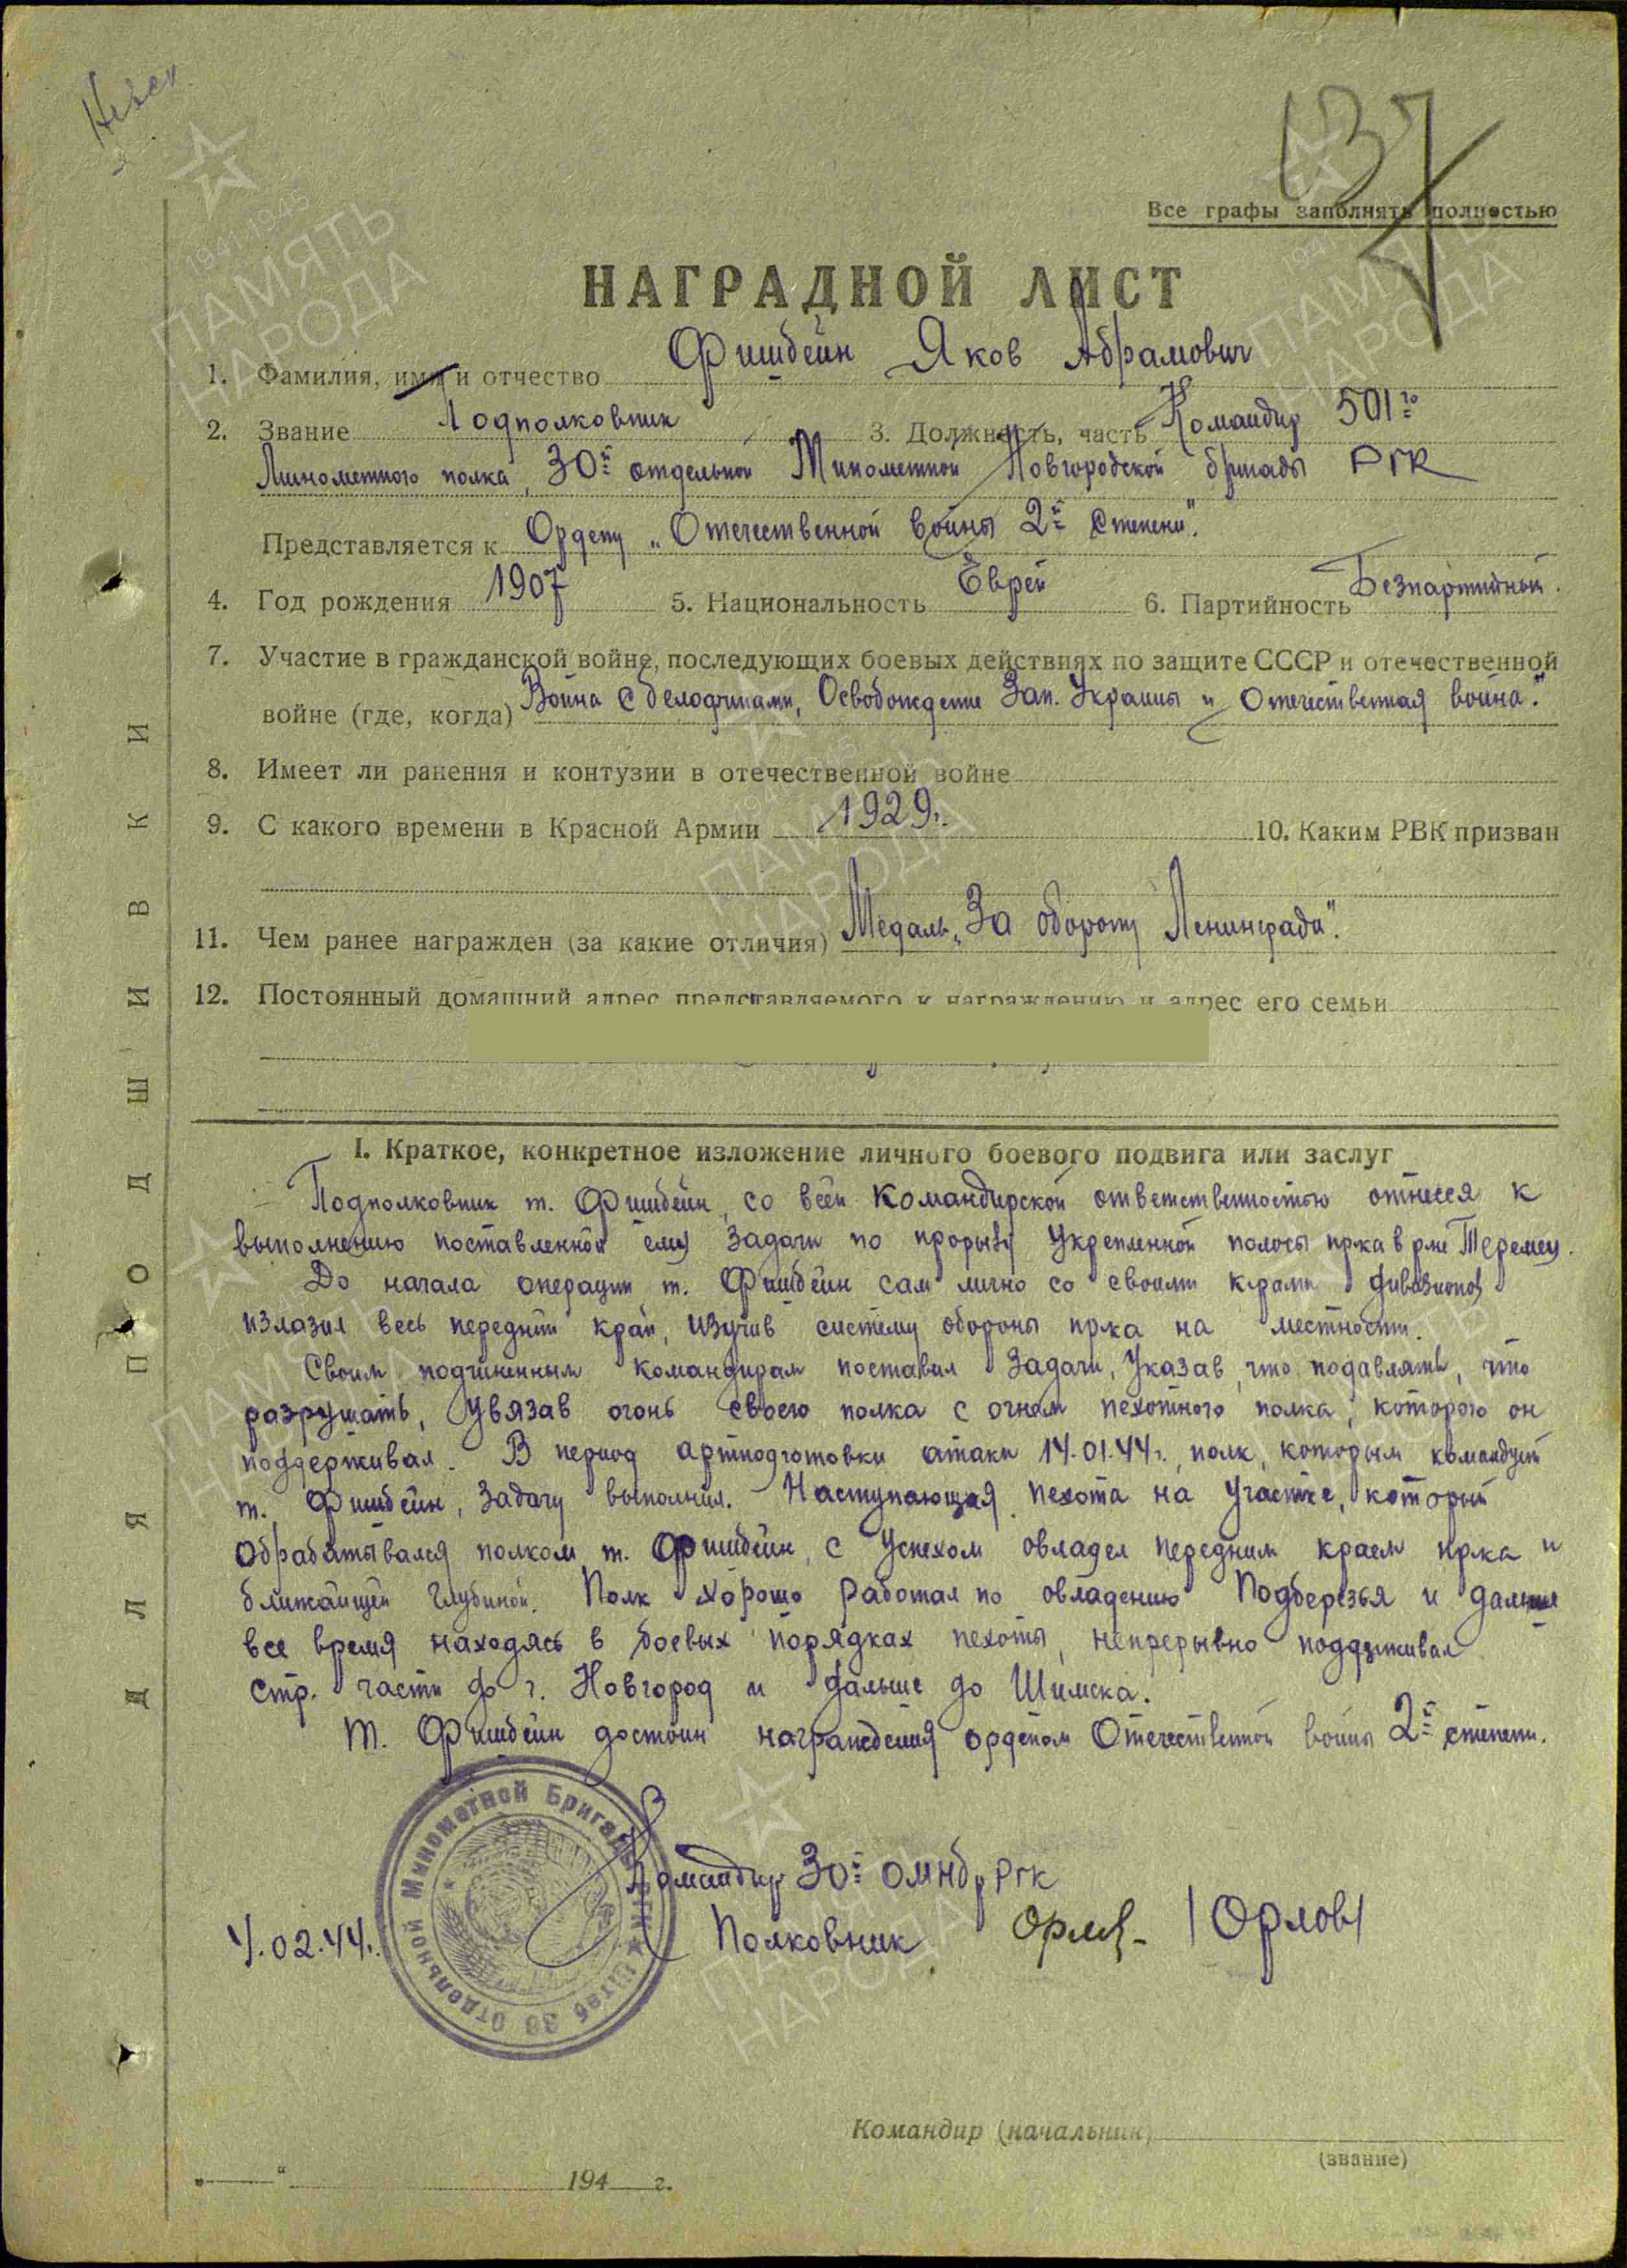 137
Все графы заполнять полностью
НАГРАДНОЙ ЛИСТ
1. Фамилия, имя и отчество Фишбейн Яков Абрамович
2. Звание Подполковник 3. Должность, часть Командир 501го
Минометного полка, 30й отдельной Минометной Новгородской бригады РГК
Представляется к Ордену „Отечественной войны 2й степени".
4. Год рождения 1907 5. Национальность Еврей 6. Партийность Безпартийный.
7. Участие в гражданской войне, последующих боевых действиях по защите СССР и отечественной
войне (где, когда) Война с белофинами, Освобождение Зап. Украины и Отечественная война."
8. Имеет ли ранения и контузии в отечественной войне
9. С какого времени в Красной Армии 1929г. 10. Каким РВК призван
11. Чем ранее награжден (за какие отличия) Медаль „За оборону Ленинграда".
12. Постоянный домашний адрес представляемого к награждению и адрес его семьи
I. Краткое, конкретное изложение личного боевого подвига или заслуг
Подполковник т. Фишбейн, со всей командирской ответственностью отнесся к
выполнению поставленной ему задачи по прорыву укрепленной полосы пр-ка в р-не Теремец.
До начала операции т. Фишбейн сам лично со своими к-рами дивизионов
излазил весь передний край, изучив систему обороны пр-ка на местности.
Своим подчиненным командирам поставил задачи, указав, что подавлять, что
разрушать, увязав огонь своего полка с огнем пехотного полка, которого он
поддерживал. В период артподготовки атаки 14.01.44г., полк, которым командует
т. Фишбейн, задачу выполнил. Наступающая пехота на участке, который
обрабатывался полком т. Фишбейн, с успехом овладел передним краем пр-ка и
ближайшей глубиной. Полк хорошо работал по овладению Подберезья и дальше
все время находясь в боевых порядках пехоты, непрерывно поддерживал
стр. части до г. Новгород и дальше до Шимска.
Т. Фишбейн достоин награждения орденом Отечественной войны 2й степени.
Командир 30й омнбр РГК
Полковник Орлов /Орлов/
4.02.44г.
Штаб 30 Отдельной Минометной Бригады РГК
Командир (начальник)
(звание)
„ “ 194 г.
ДЛЯ ПОДШИВКИ
1941 1945
ПАМЯТЬ
НАРОДА